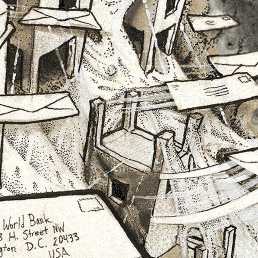 World Bank
H. Street NW
gton D.C. 20433
USA